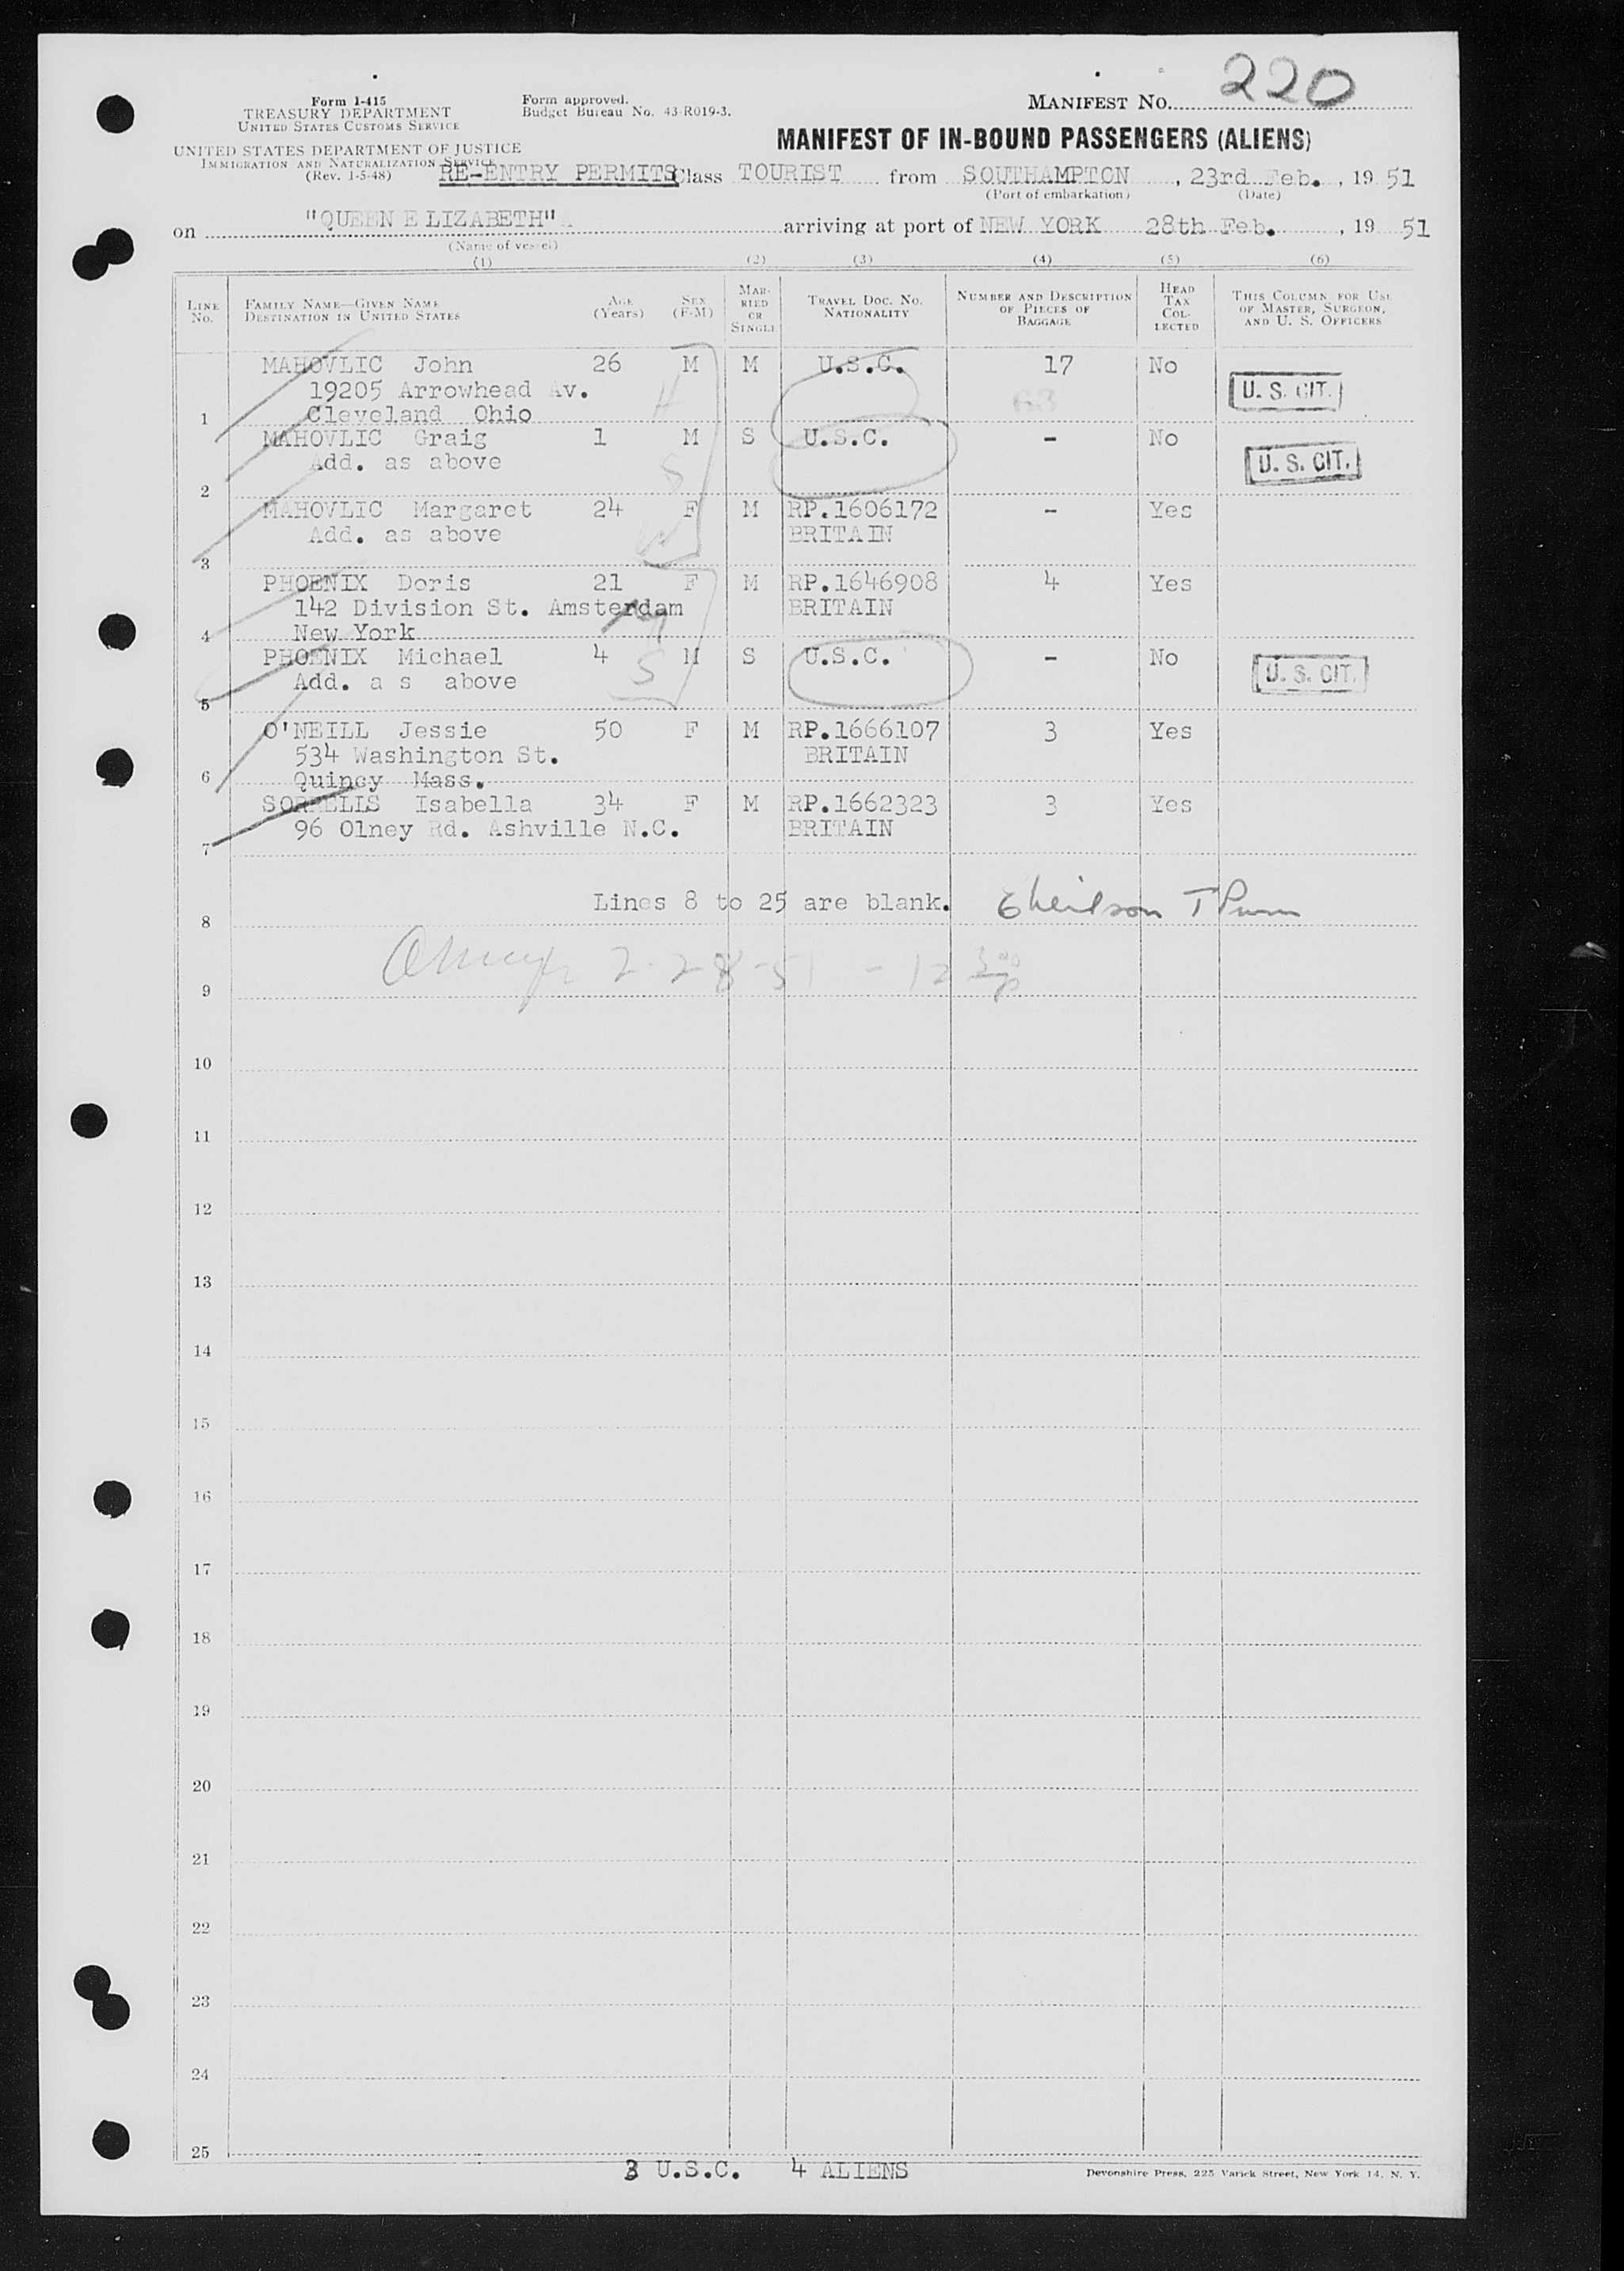 220
Form I-415
TREASURY DEPARTMENT
UNITED STATES CUSTOMS SERVICE
Form approved.
Budget Bureau No. 43-R019-3.
MANIFEST NO.
UNITED STATES DEPARTMENT OF JUSTICE
IMMIGRATION AND NATURALIZATION SERVICE
(Rev. 1-5-48)
MANIFEST OF IN-BOUND PASSENGERS (ALIENS)
RE-ENTRY PERMITS Class TOURIST from SOUTHAMPTON, 23rd Feb., 19 51
(Port of embarkation) (Date)
on "QUEEN E LIZABETH" arriving at port of NEW YORK 28th Feb., 19 51
(Name of vessel)
(1) (2) (3) (4) (5) (6)
LINE No. FAMILY NAME—GIVEN NAME DESTINATION IN UNITED STATES AGE (Years) SEX (F-M) MARRIED OR SINGLE TRAVEL DOC. NO. NATIONALITY NUMBER AND DESCRIPTION OF PIECES OF BAGGAGE HEAD TAX COLLECTED THIS COLUMN FOR USE OF MASTER, SURGEON, AND U. S. OFFICERS
MAHOVLIC John 26 M M U.S.C. 17 No
19205 Arrowhead Av. H 63 U. S. CIT.
1 Cleveland Ohio
MAHOVLIC Graig 1 M S U.S.C. - No
Add. as above S U. S. CIT.
2
MAHOVLIC Margaret 24 F M RP.1606172 - Yes
Add. as above W BRITAIN
3
PHOENIX Doris 21 F M RP.1646908 4 Yes
142 Division St. Amsterdam BRITAIN
4 New York
PHOENIX Michael 4 M S U.S.C. - No
Add. a s above S U. S. CIT.
5
O'NEILL Jessie 50 F M RP.1666107 3 Yes
534 Washington St. BRITAIN
6 Quincy Mass.
SORRELLS Isabella 34 F M RP.1662323 3 Yes
96 Olney Rd. Ashville N.C. BRITAIN
7
Lines 8 to 25 are blank.
8
2-28-51 - 12
9
10
11
12
13
14
15
16
17
18
19
20
21
22
23
24
25
3 U.S.C. 4 ALIENS
Devonshire Press, 225 Varick Street, New York 14, N. Y.